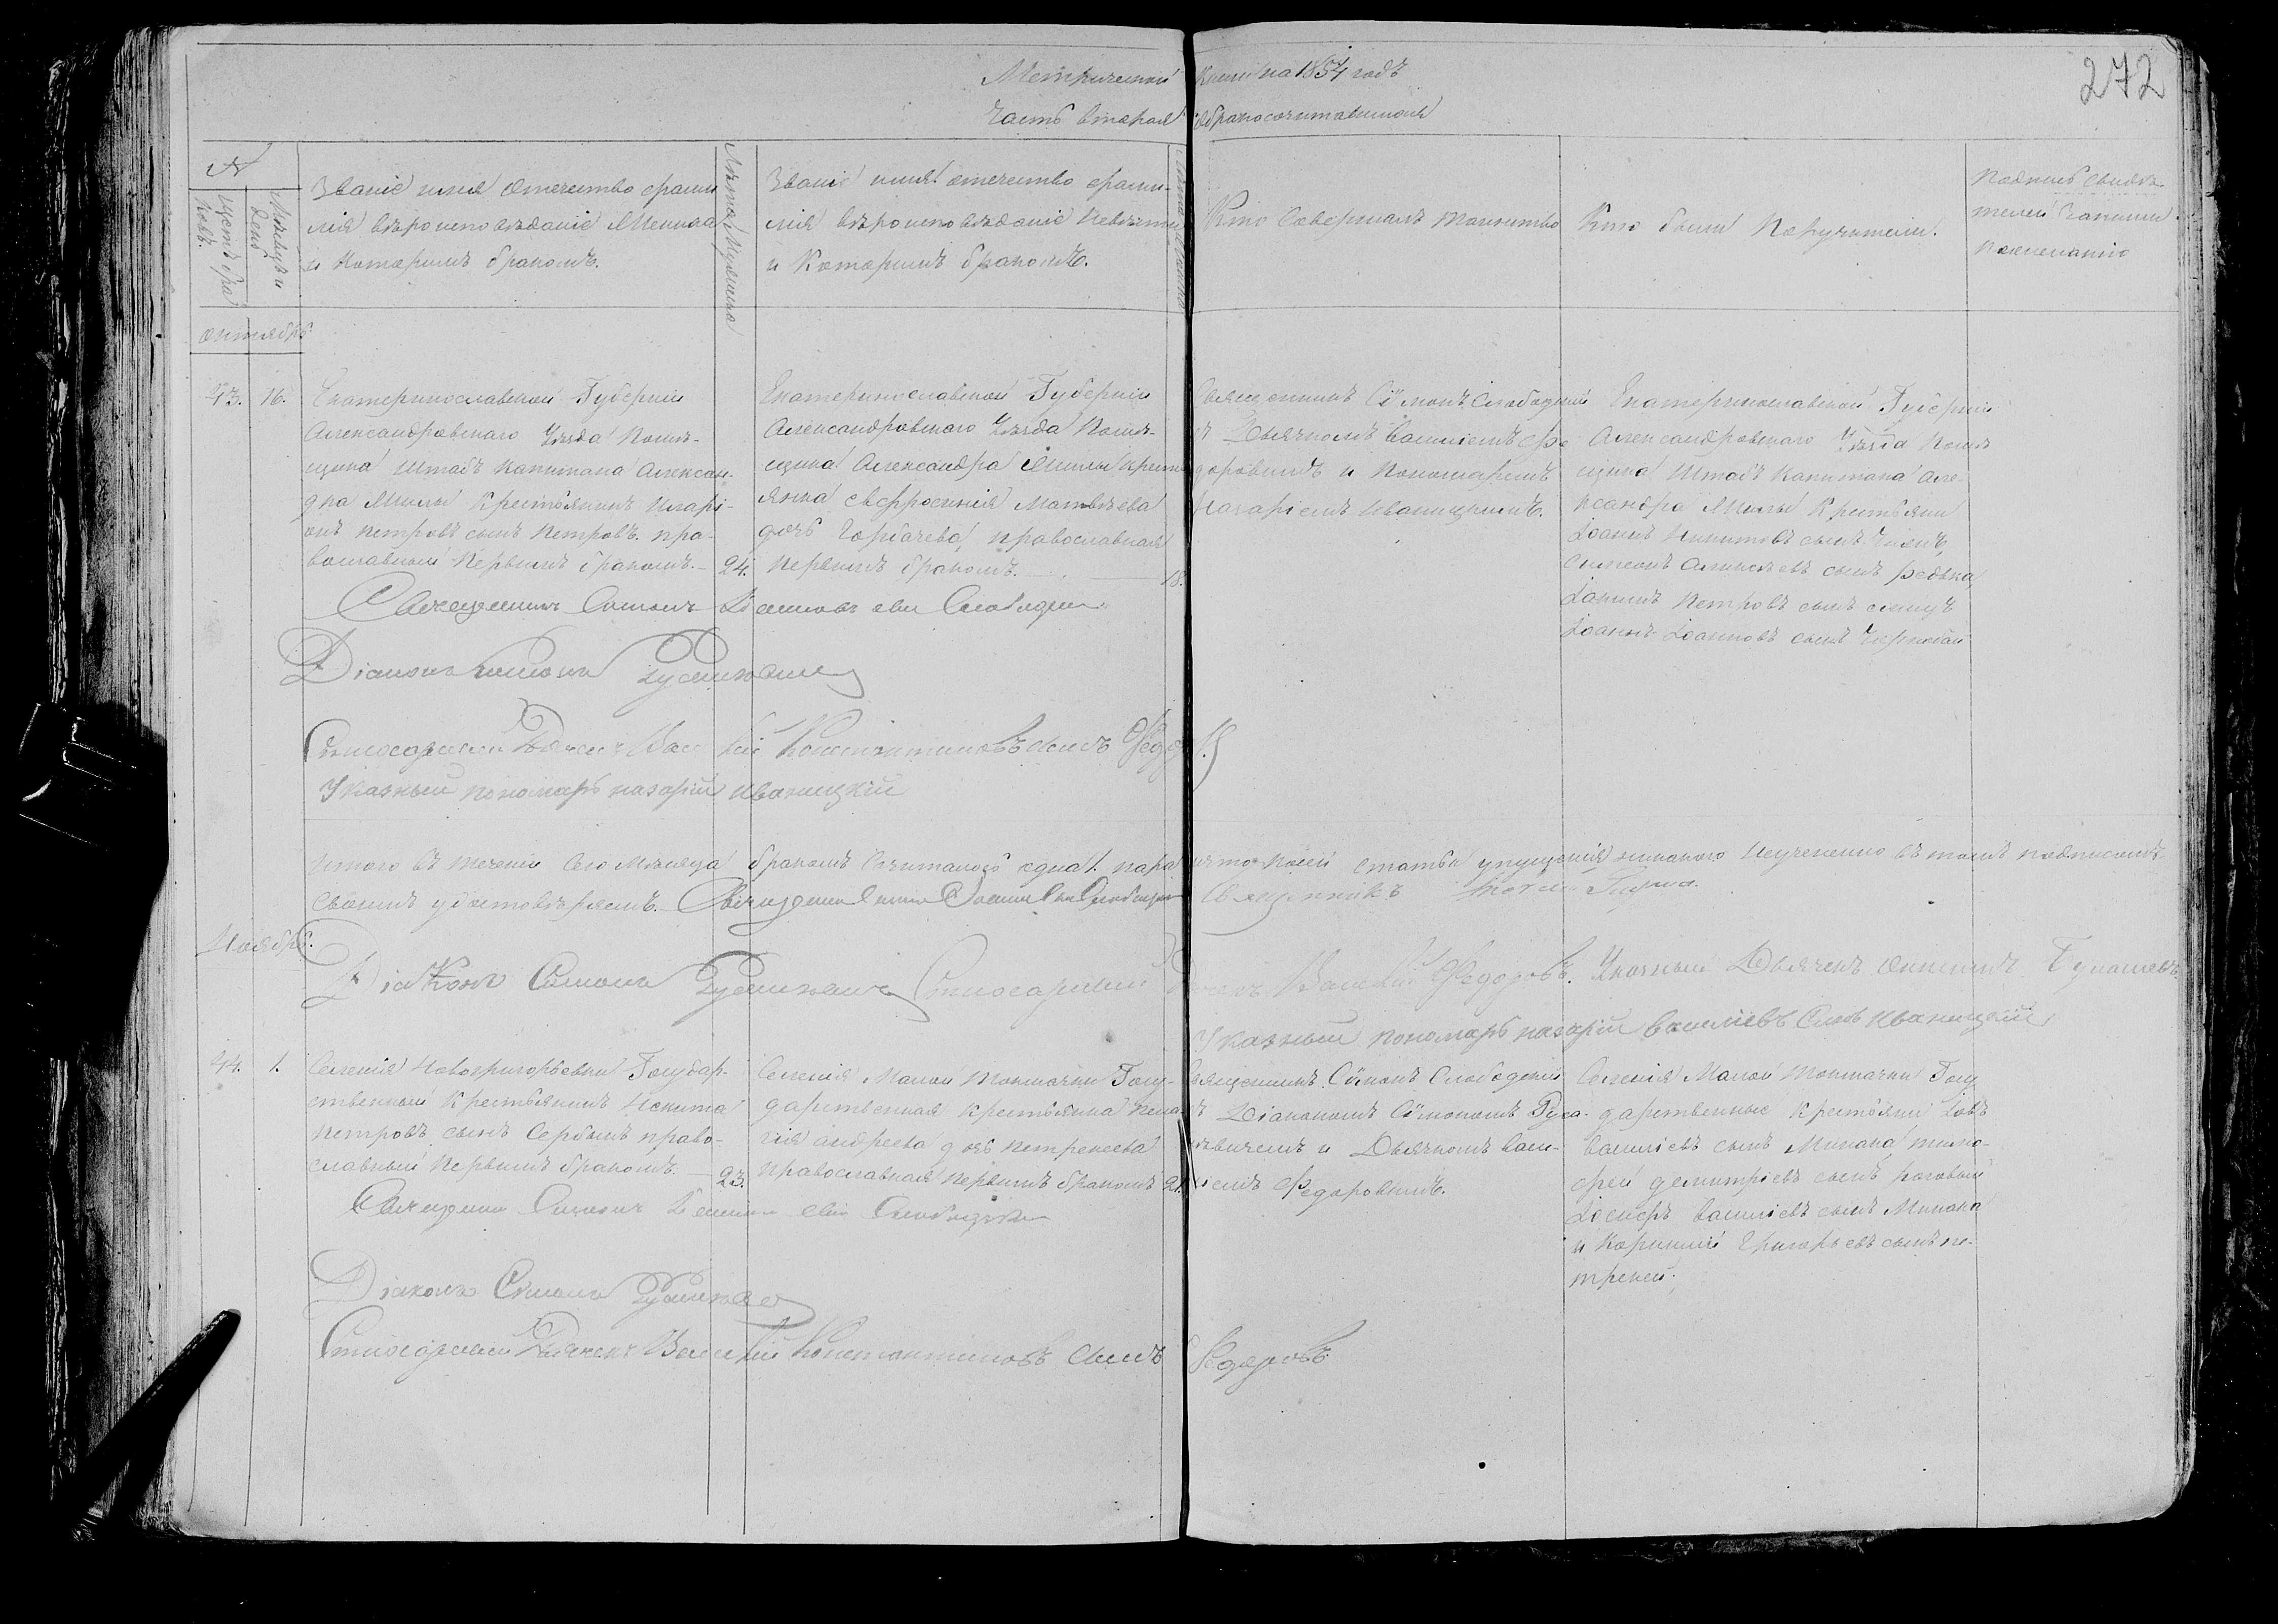 272
Метрической книги на 1854 годъ
Часть вторая о бракосочитавшихся
№
Щетъ браковъ
Месяцъ и день
Званіе имя отечество фами-
лія вѣроисповѣданіе Жениха
и которымъ бракомъ.
Лѣта Жениха
Званіе имя отечество фами-
лія вѣроисповѣданіе невѣсты
и Которымъ бракомъ.
Лѣта
Кто Совершалъ таинство
Кто были Поручители.
Подпись свидѣ-
телей записи
по желанію
октябрь
43. 16.
Екатеринославской Губерніи
Александровскаго Уѣзда Помѣ-
щика Штабъ Капитана Алексан-
дра Милы Крестьянинъ Иларі-
онъ Петровъ сынъ Петровъ. пра-
вославный Первымъ бракомъ.
24.
Екатеринославской Губерніи
Александровскаго Уѣзда Помѣ-
щика Александра Милы крест
янка Евфросинія Матвѣева
дочь Горбачева, православная
первымъ бракомъ.
18.
Священникъ Сѵмонъ Слободскій
съ Дьячкомъ Василіемъ Фе
доровымъ и Пономаремъ
Назаріемъ Иваницкимъ.
Екатеринославской Губерніи
Александровскаго Уѣзда Помѣ
щика Штабъ Капитана Але-
ксандра Милы Крестьяни
Іоаннъ Никитовъ сынъ
Симеонъ Алексѣевъ сынъ редька,
Петровъ сынъ
Іоаннъ Іоанновъ сынъ
Священникъ Симонъ Слободскій
Діаконъ Симонъ
Стихарный Дьячекъ Василій Константиновъ сынъ Федоровъ
Указный пономарь назарій иваницкій
Итого въ теченіи Сего Мѣсяца бракомъ Сочиталось една 1. пара что по сей статьи упущенія никакого неучинено въ томъ подписомъ
своимъ удостовѣряемъ. Священникъ Симонъ Слободскій Священникъ
Ноябрь.
Діаконъ Симонъ Стихарный Дьячекъ Василій Федоровъ. Указный Дьячекъ
Указный пономарь назарій василіевъ Сынъ иваницкій
44. 1.
Селенія Новогригорьевки Государ-
ственный Крестьянинъ Никита
Петровъ сынъ Сербинъ право-
славный Первымъ бракомъ.
23.
Селенія Малой Токмачки Госу-
дарственная крестьянка Пела-
гія андреева дочь петренкова
православная первымъ бракомъ
21.
Священникъ Сѵмонъ Слободскій
съ Діакономъ Сѵмономъ Руса-
невичемъ и Дьячкомъ Васи-
ліемъ Федоровымъ.
Селенія Малой Токмачки Госу
дарственные крестьяни Іовъ
Василіевъ сынъ Микана тимо-
фей димитріевъ сынъ роговый
Іосифъ Василіевъ сынъ Микана
и Корнилій Григорьевъ сынъ пе-
тренко.
Священникъ Симонъ Слободскій
Діаконъ Симонъ
Стихарный Дьячекъ Василій Константиновъ Сынъ Федоровъ